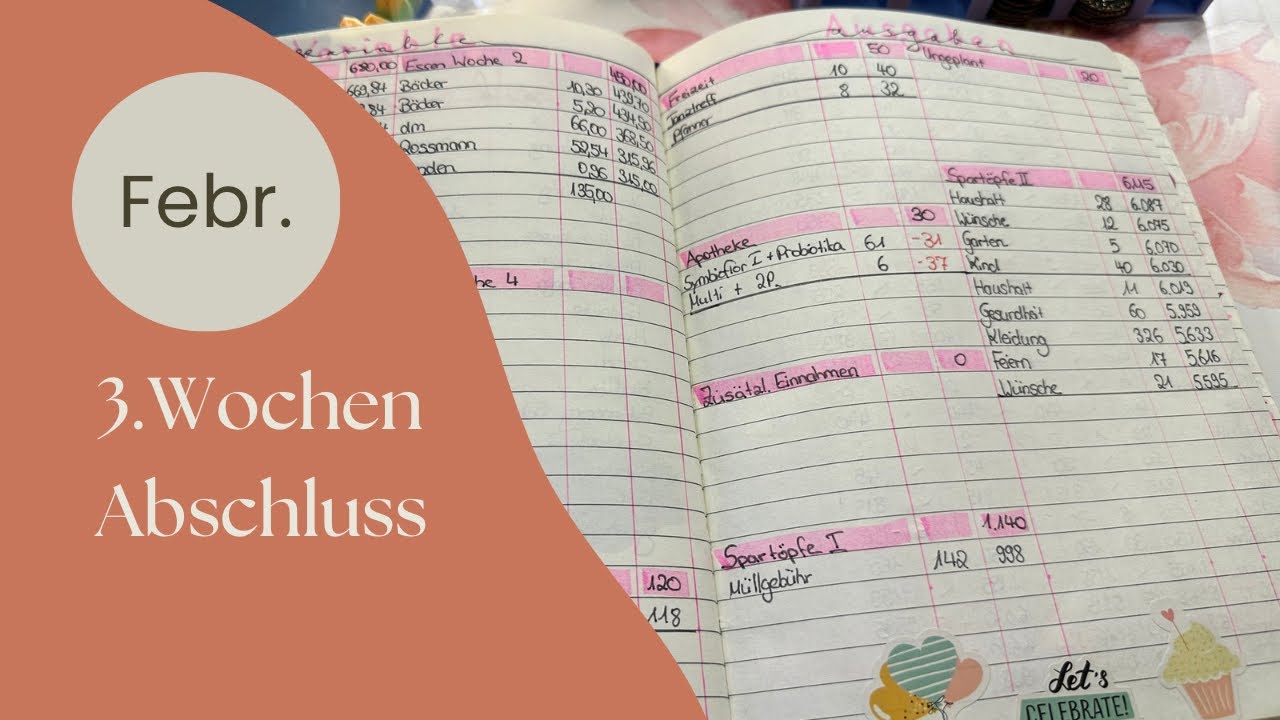 Febr.
3.Wochen
Abschluss
680,00 Essen Woche 2 450,00
669,84 Bäcker 10,30 439,70
Bäcker 5,20 434,50
dm 66,00 368,50
Rossmann 52,54 315,96
0,96 315,00
135,00
4
120
118
Ausgaben
Freizeit 50
Tanztreff 10 40
Pfänner 8 32
Apotheke 30
Symbioflor I + Probiotika 61 -31
Multi + 2P. 6 -37
Zusätzl. Einnahmen 0
Spartöpfe I 1.140
Müllgebühr 142 998
Ungeplant 20
Spartöpfe II 6.115
Haushalt 28 6.087
Wünsche 12 6.075
Garten 5 6.070
Kind 40 6.030
Haushalt 11 6.019
Gesundheit 60 5.959
Kleidung 326 5633
Feiern 17 5616
Wünsche 21 5595
Let's
CELEBRATE!